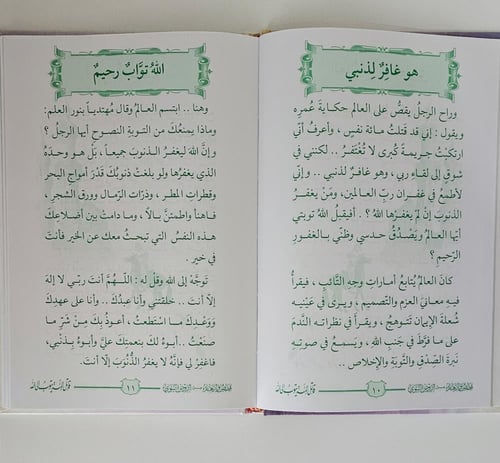 هو غافِرٌ لِذنبي
وراح الرجلُ يقصُّ على العالم حكايةَ عُمرِه
ويقول : إني قد قتلتُ مائة نفسٍ ، وأعرفُ أنّي
ارتكبْتُ جريمةً كُبرى لا تُغْتَفَرُ .. لكنني في
شوقٍ إلى لقاءِ ربي ، وهو غافرٌ لذنبي .. وإنّي
لأطمعُ في غفرانِ ربّ العالمين، ومَنْ يغفرُ
الذنوبَ إنْ لمْ يغفرْها اللهُ ؟ . أفيقبلُ اللهُ توبتي
أيّها العالمُ ويَصْدُقُ حدسي وظنّي بالغفورِ
الرّحيم ؟
كانَ العالمُ يُتابعُ أماراتِ وجهِ التّائبِ ، فيقرأُ
فيهِ معانيَ العزمِ والتّصميمِ ، ويرى في عَيْنيهِ
شُعلةَ الإيمانِ تَتوهجُ ، ويقرأُ في نظراتِه النَّدمَ
على ما فرَّطَ في جنبِ اللهِ ، ويَسمعُ في صوتِهِ
نَبرةَ الصِّدقِ والتَّوبَةِ والإخلاصِ ..
١٠
اللهُ توَّابٌ رحيمٌ
وهنا .. ابتسم العالمُ وقال مُهتدياً بنور العلم:
وماذا يمنعُكَ من التوبةِ النصوحِ أيها الرجلُ ؟
وإنَّ اللهَ ليغفرُ الذنوبَ جميعاً ، بَلْ هو وحدَهُ
الذي يغفرُها ولو بلغتْ ذنوبُكَ قدْرَ أمواجِ البحرِ
وقطراتِ المطرِ ، وذرّاتِ الرّمالِ وورقِ الشجرِ .
فاهنأ واطمئنَّ بالاً ، وما دامتْ بين أضلاعِكَ
هذه النفسُ التي تبحثُ معك عن الخيرِ فأنتَ
في خيرٍ .
توجَّهْ إلى اللهِ وقلْ له : اللّهـمَّ أنتَ ربّي لا إلهَ
إلّا أنتَ .. خلقتني وأنا عبدُكَ .. وأنا على عهدِكَ
وَوَعْدِكَ ما استطعتُ ، أعوذُ بكَ مِنْ شَرِّ ما
صَنَعْتُ .. أبوءُ لكَ بنعمتِكَ عليَّ وأبوءُ بذنْبي،
فاغفِرْ لي فإنَّهُ لا يغفرُ الذُّنُوْبَ إلّا أنتَ.
١١